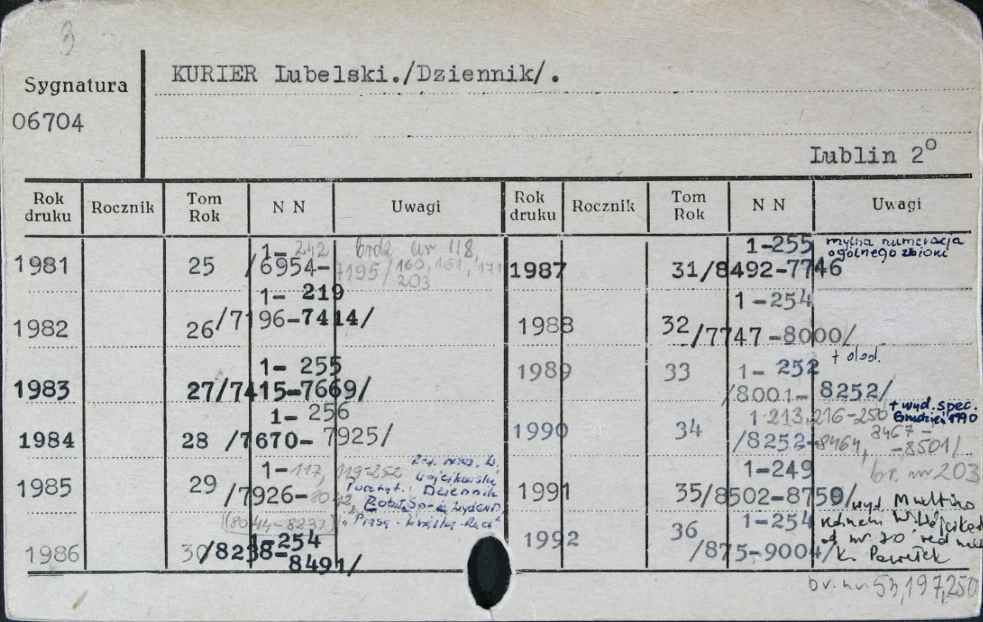 3
KURIER Lubelski./Dziennik/.
Sygnatura
06704
Lublin 2°
Rok druku Rocznik Tom Rok N N Uwagi Rok druku Rocznik Tom Rok N N Uwagi
1981 25 1-242 /6954-7195/ brdz nr 118, 160, 161, 171 203
1982 26 1- 219 /7196-7414/
1983 27 1- 255 /7415-7669/
1984 28 1- 256 /7670- 7925/
1985 29 1-117, 119-252 /7926- 8042, (8044-8237)
Dziennik
1986 30 1-254 /8238-8491/
1987 31 1-255 /8492-7746 mylna numeracja ogólnego zbioru
1988 32 1-254 /7747-8000/
1989 33 1- 252 /8001- 8252/ + dod.
1990 34 1-213,216-250 /8252-8464, 8467 - -8501/ + wyd. spec. Grudzień 1990
br. nr 203
1991 35 1-249 /8502-8750/
1992 36 1-254 /875-9004/
od nr 70 red.
K. Pawełek
br. nr. 53,197,250